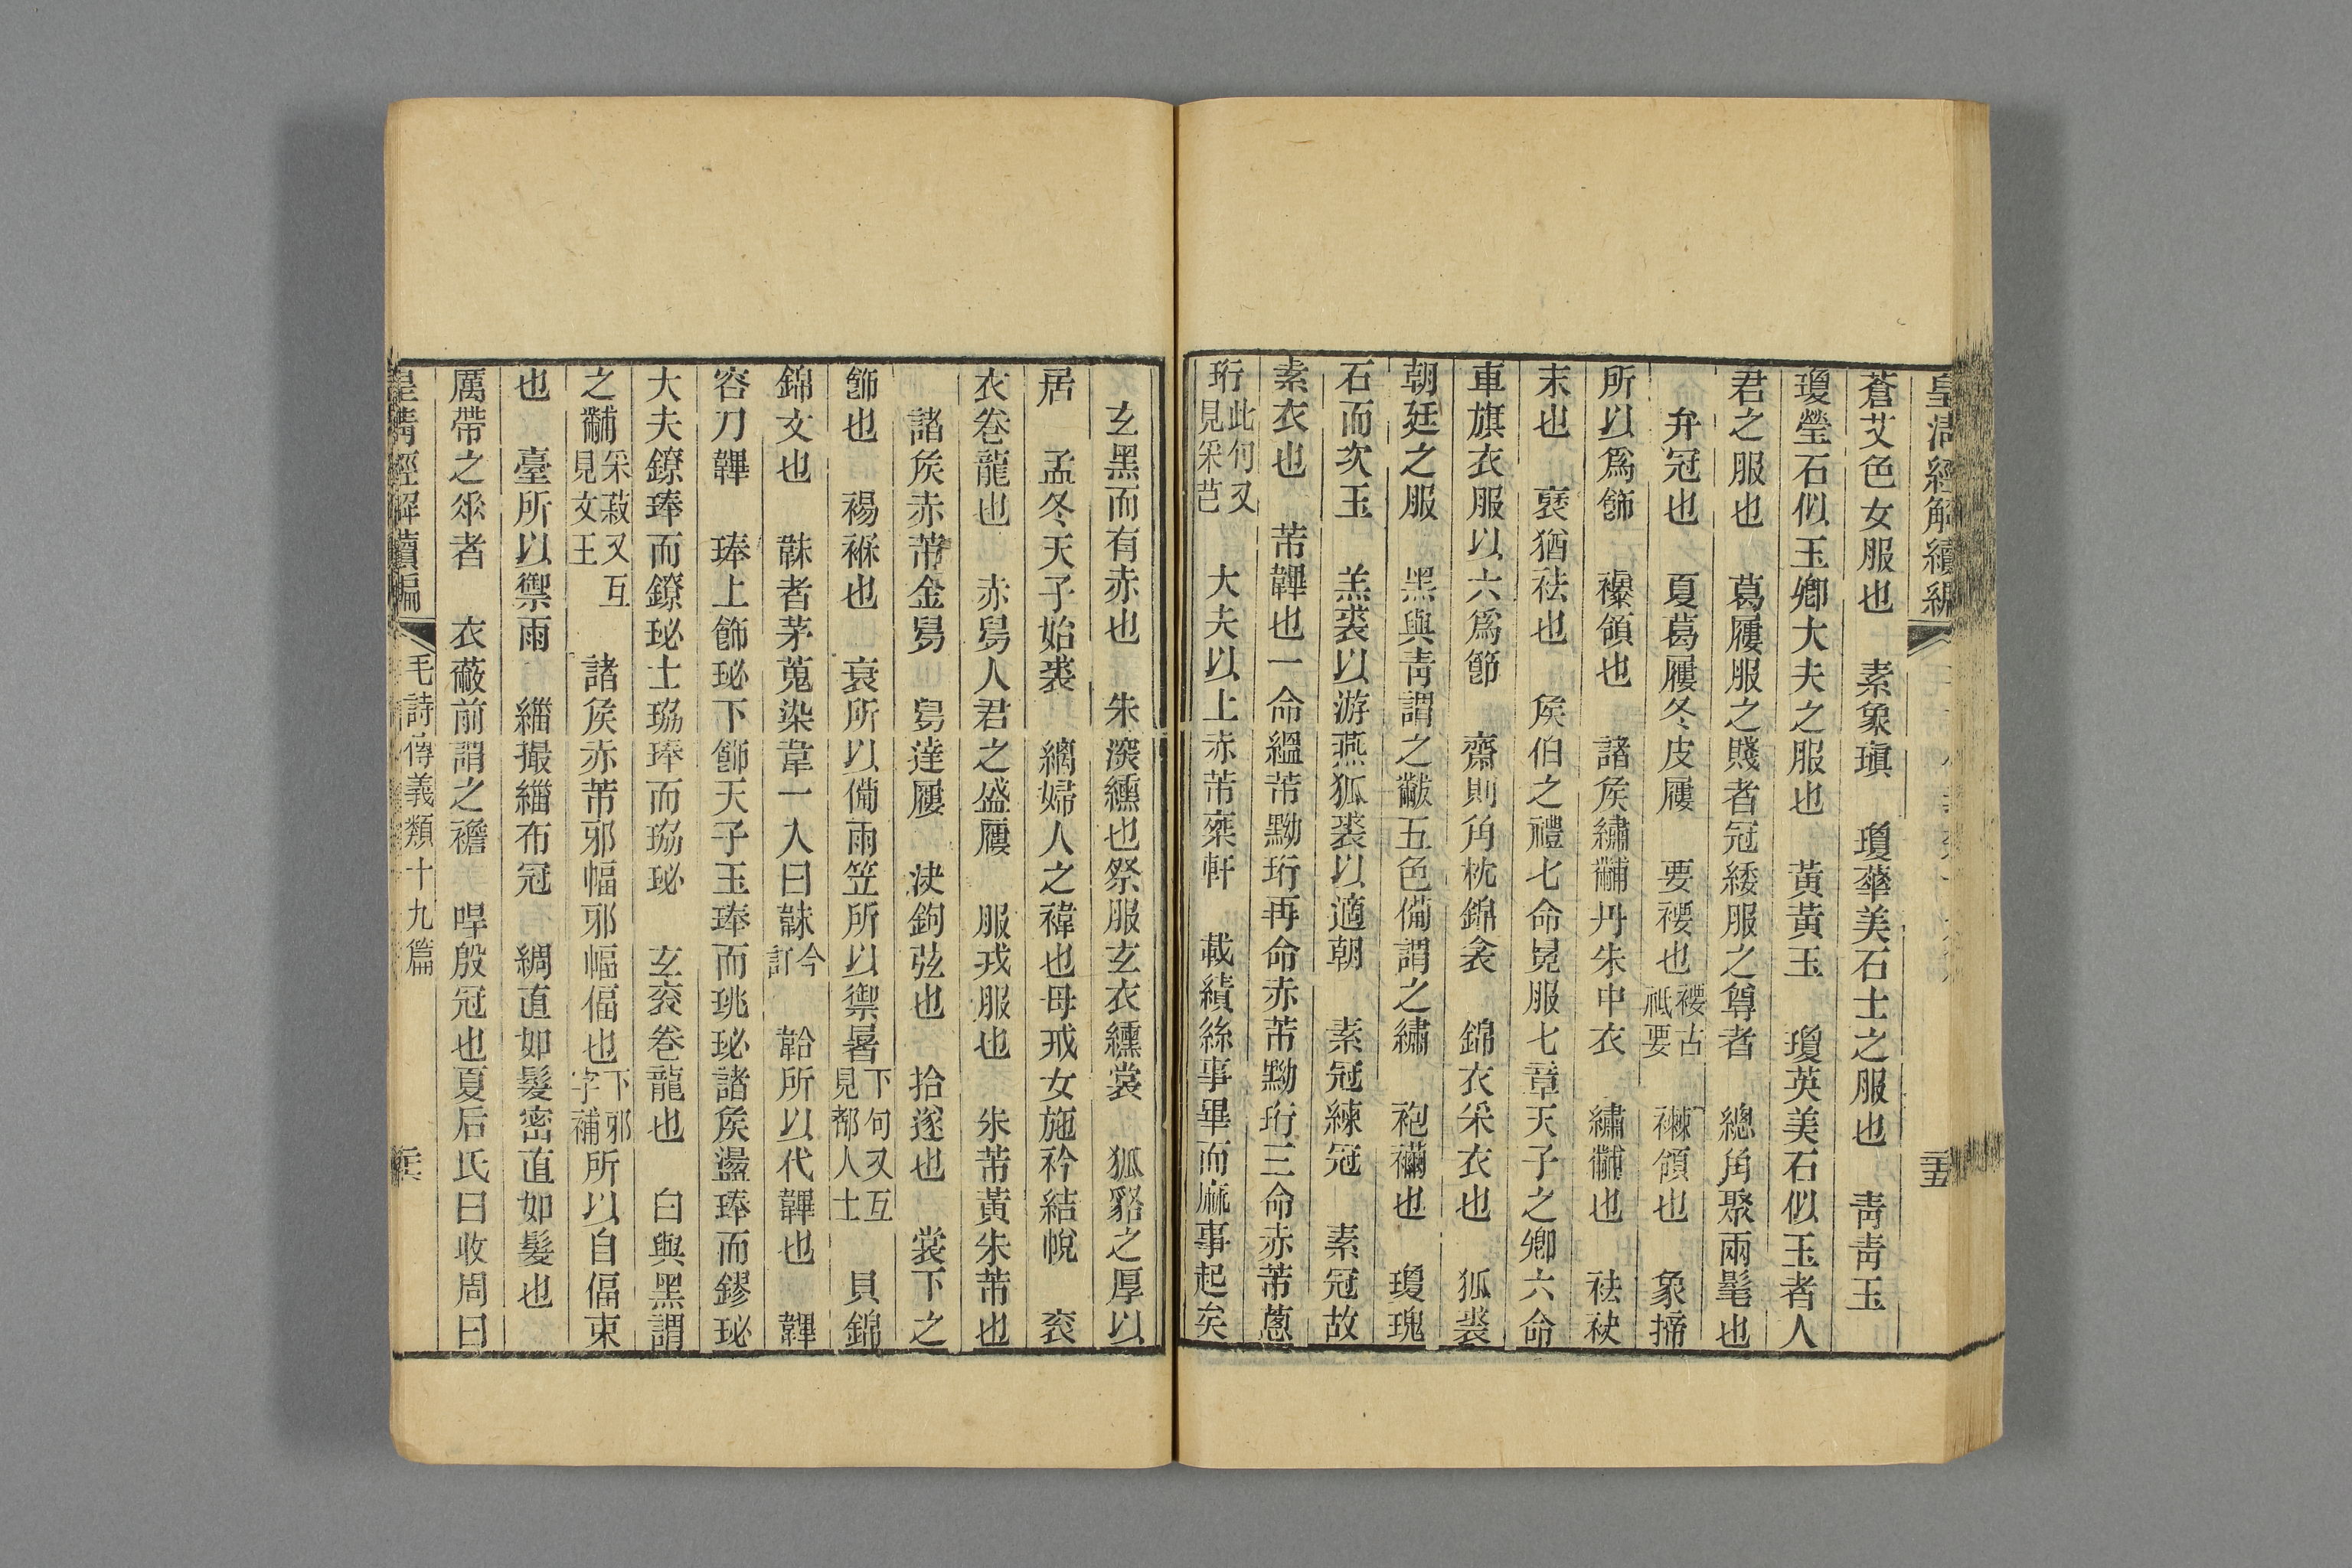 皇清經解續編
蒼艾色女服也　素象瑱　瓊華美石士之服也　靑靑玉
瓊瑩石似玉卿大夫之服也　黃黃玉　瓊英美石似玉者人
君之服也　葛屨服之賤者冠緌服之尊者　總角聚兩髦也
弁冠也　夏葛屨冬皮屨　要䙅也䙅古衹要　襋領也　象揥
所以爲飾　襮領也　諸侯繡黼丹朱中衣　繡黼也　袪袂
末也　褎猶袪也　侯伯之禮七命冕服七章天子之卿六命
車旗衣服以六爲節　齋則角枕錦衾　錦衣采衣也　狐裘
朝廷之服　黑與靑謂之黻五色備謂之繡　袍襺也　瓊瑰
石而次玉　羔裘以游燕狐裘以適朝　素冠練冠　素冠故
素衣也　芾韠也一命縕芾黝珩再命赤芾黝珩三命赤芾蔥
珩此句又見采芑　大夫以上赤芾椉軒　載績絲事畢而麻事起矣
玄黑而有赤也　朱深纁也祭服玄衣纁裳　狐貉之厚以
居　孟冬天子始裘　縭婦人之褘也母戒女施衿結帨　衮
衣卷龍也　赤舄人君之盛屨　服戎服也　朱芾黃朱芾也
諸侯赤芾金舄　舄達屨　決鉤弦也　拾遂也　裳下之
飾也　裼褓也　蓑所以備雨笠所以禦暑下句又互見都人士　貝錦
錦文也　韎者茅蒐染韋一入曰韎今訂　韐所以代韠也　鞸
容刀鞸　琫上飾珌下飾天子玉琫而珧珌諸侯璗琫而璆珌
大夫鐐琫而鐐珌士珕琫而珕珌　玄衮卷龍也　白與黑謂
之黼采菽又互見文王　諸侯赤芾邪幅邪幅偪也下邪字補所以自偪束
也　臺所以禦雨　緇撮緇布冠　綢直如髮密直如髮也
厲帶之垂者　衣蔽前謂之襜　冔殷冠也夏后氏曰收周曰
皇淸經解續編　毛詩傳義類十九篇